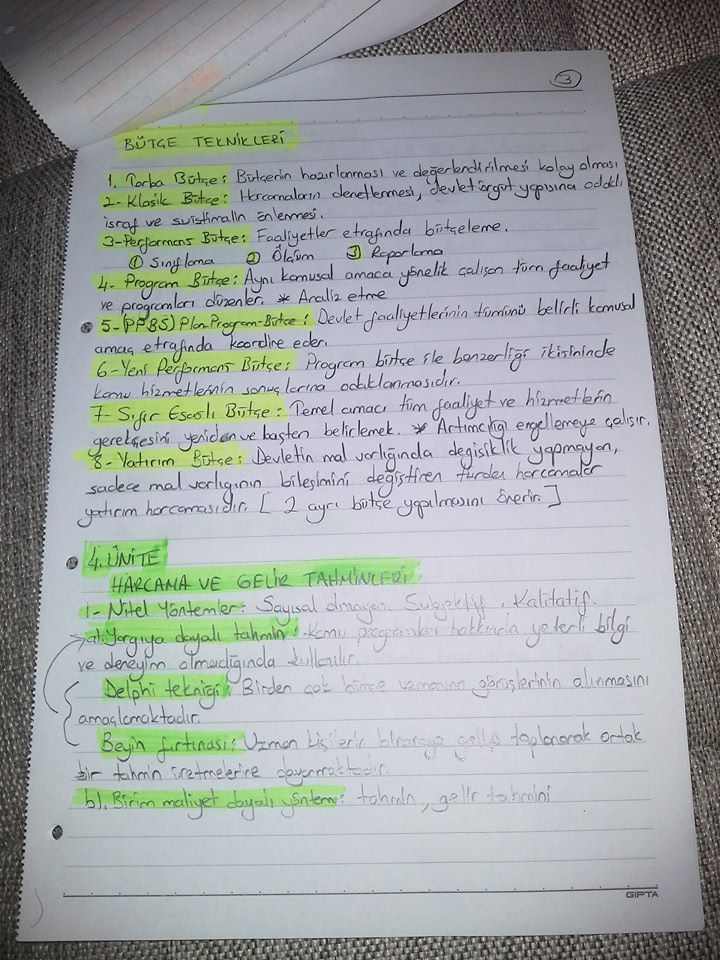 3
BÜTÇE TEKNİKLERİ
1. Torba Bütçe: Bütçenin hazırlanması ve değerlendirilmesi kolay olması
2- Klasik Bütçe: Harcamaların denetlenmesi, devlet örgüt yapısına odaklı
israf ve suistimalin önlenmesi.
3-Performans Bütçe: Faaliyetler etrafında bütçeleme.
① Sınıflama ② Ölçüm ③ Raporlama
4- Program Bütçe: Aynı kamusal amaca yönelik çalışan tüm faaliyet
ve programları düzenler. * Analiz etme
5-(PPBS) Plan-Program-Bütçe: Devlet faaliyetlerinin tümünü belirli kamusal
amaç etrafında koordine eder.
6-Yeni Performans Bütçe: Program bütçe ile benzerliği ikisininde
kamu hizmetlerinin sonuçlarına odaklanmasıdır.
7- Sıfır Esaslı Bütçe: Temel amacı tüm faaliyet ve hizmetlerin
gerekçesini yeniden ve baştan belirlemek. * Artımcılığı engellemeye çalışır.
8-Yatırım Bütçe: Devletin mal varlığında değişiklik yapmayan,
sadece mal varlığının bileşimini değiştiren türden harcamalar
yatırım harcamasıdır. [ 2 ayrı bütçe yapılmasını önerir. ]
4. ÜNİTE
HARCAMA VE GELİR TAHMİNLERİ:
1- Nitel Yöntemler: Sayısal olmayan. Subjektif, Kalitatif.
a). Yargıya dayalı tahmin: Kamu programları hakkında yeterli bilgi
ve deneyim olmadığında kullanılır.
Delphi tekniği: Birden çok bütçe uzmanının görüşlerinin alınmasını
amaçlamaktadır.
Beyin fırtınası: Uzman kişilerin biraraya gelip toplanarak ortak
bir tahmin üretmelerine dayanmaktadır.
b). Birim maliyet dayalı yöntem: tahmin, gelir tahmini
GIPTA